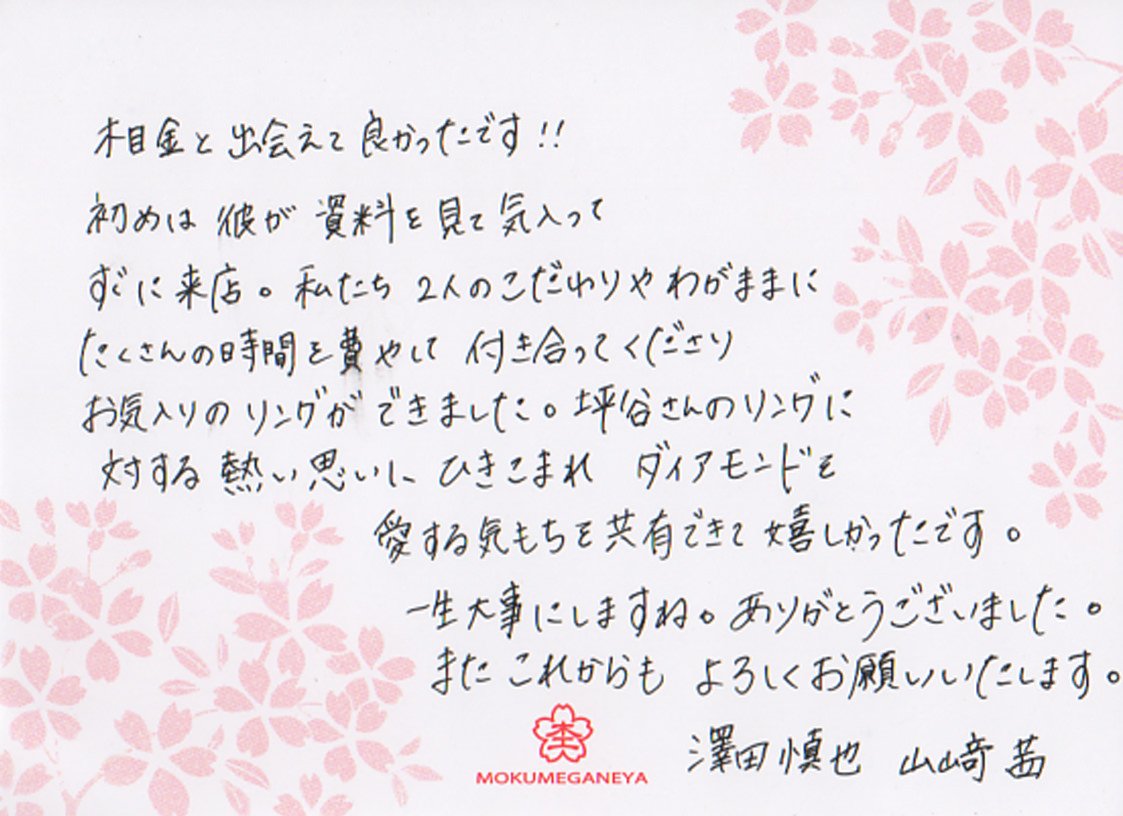 木目金と出会えて良かったです!!
初めは彼が資料を見て気入って
すぐに来店。私たち2人のこだわりやわがままに
たくさんの時間を費やして付き合ってくださり
お気入りのリングができました。坪谷さんのリングに
対する熱い思いに、ひきこまれ ダイアモンドを
愛する気もちを共有できて嬉しかったです。
一生大事にしますね。ありがとうございました。
またこれからも よろしくお願いいたします。
澤田慎也 山崎茜
MOKUMEGANEYA